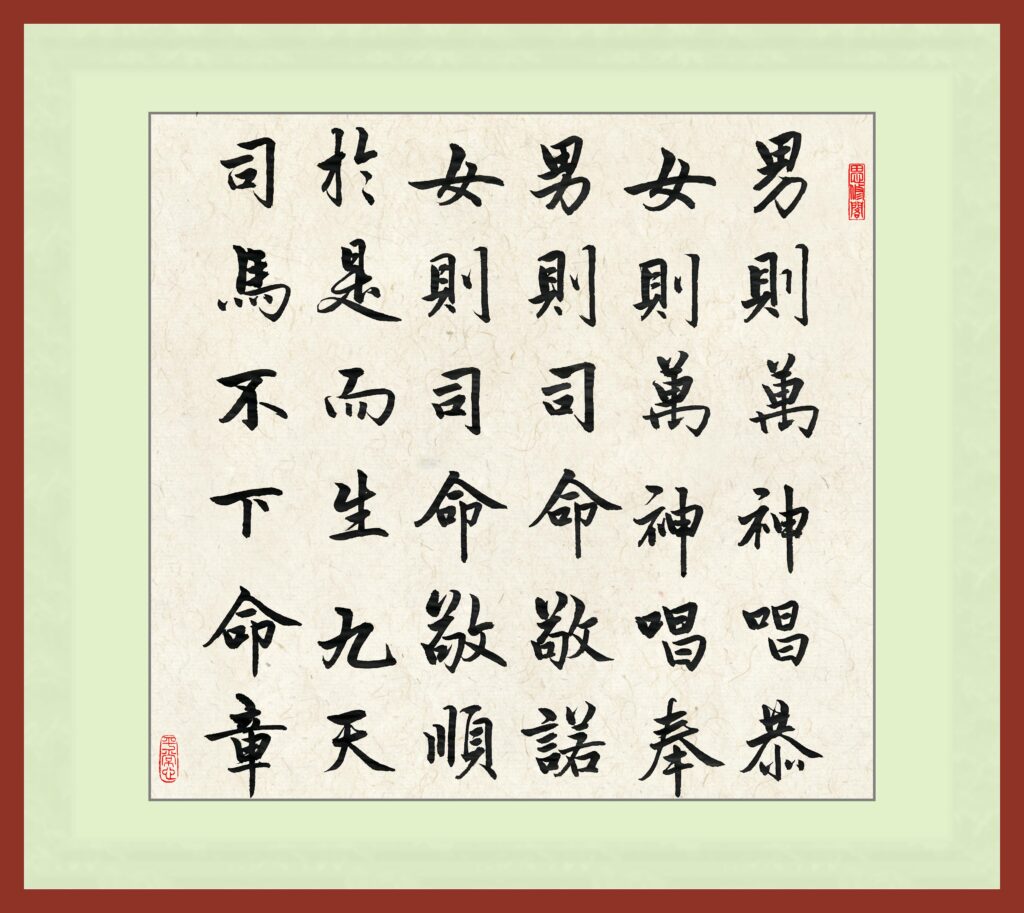 思源閣
男則萬神唱恭
女則萬神唱奉
男則司命敬諾
女則司命敬順
於是而生九天
司馬不下命章
平常心